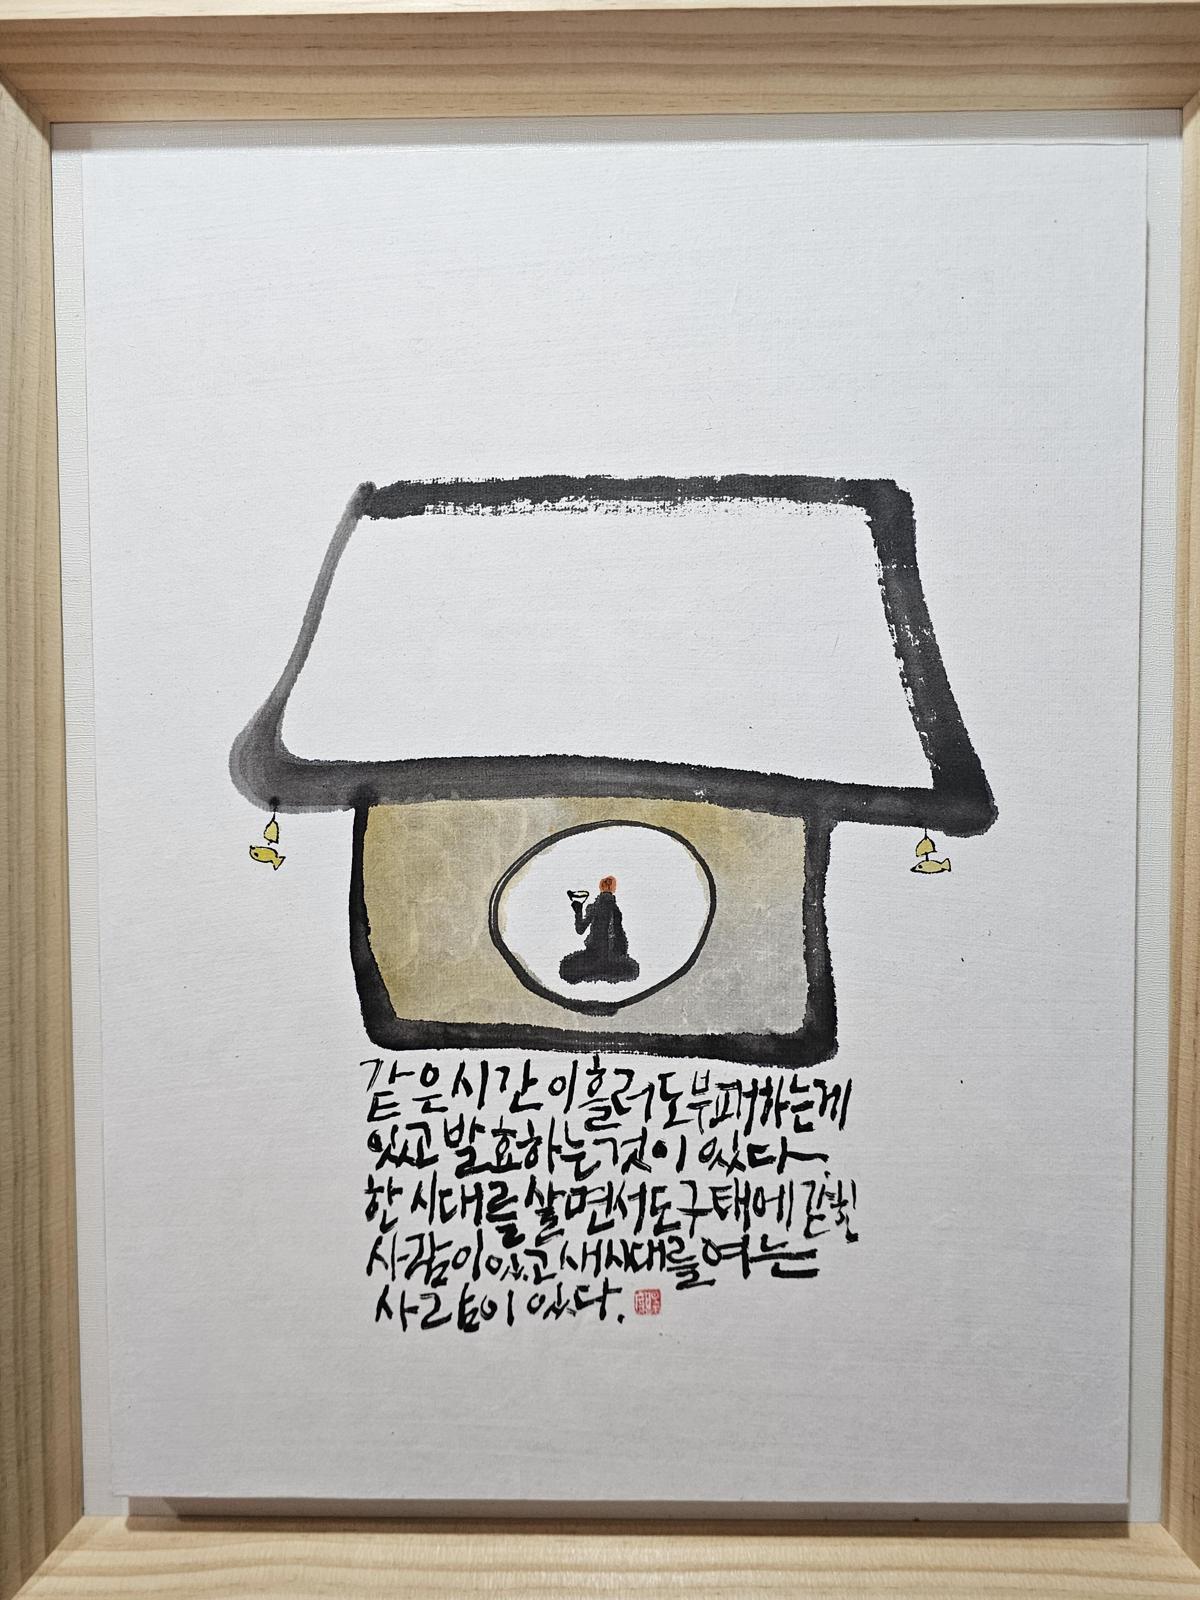 같은 시간이 흘러도 부패하는게
있고 발효하는 것이 있다.
한 시대를 살면서도 구태에 갇힌
사람이 있고 새시대를 여는
사람이 있다.